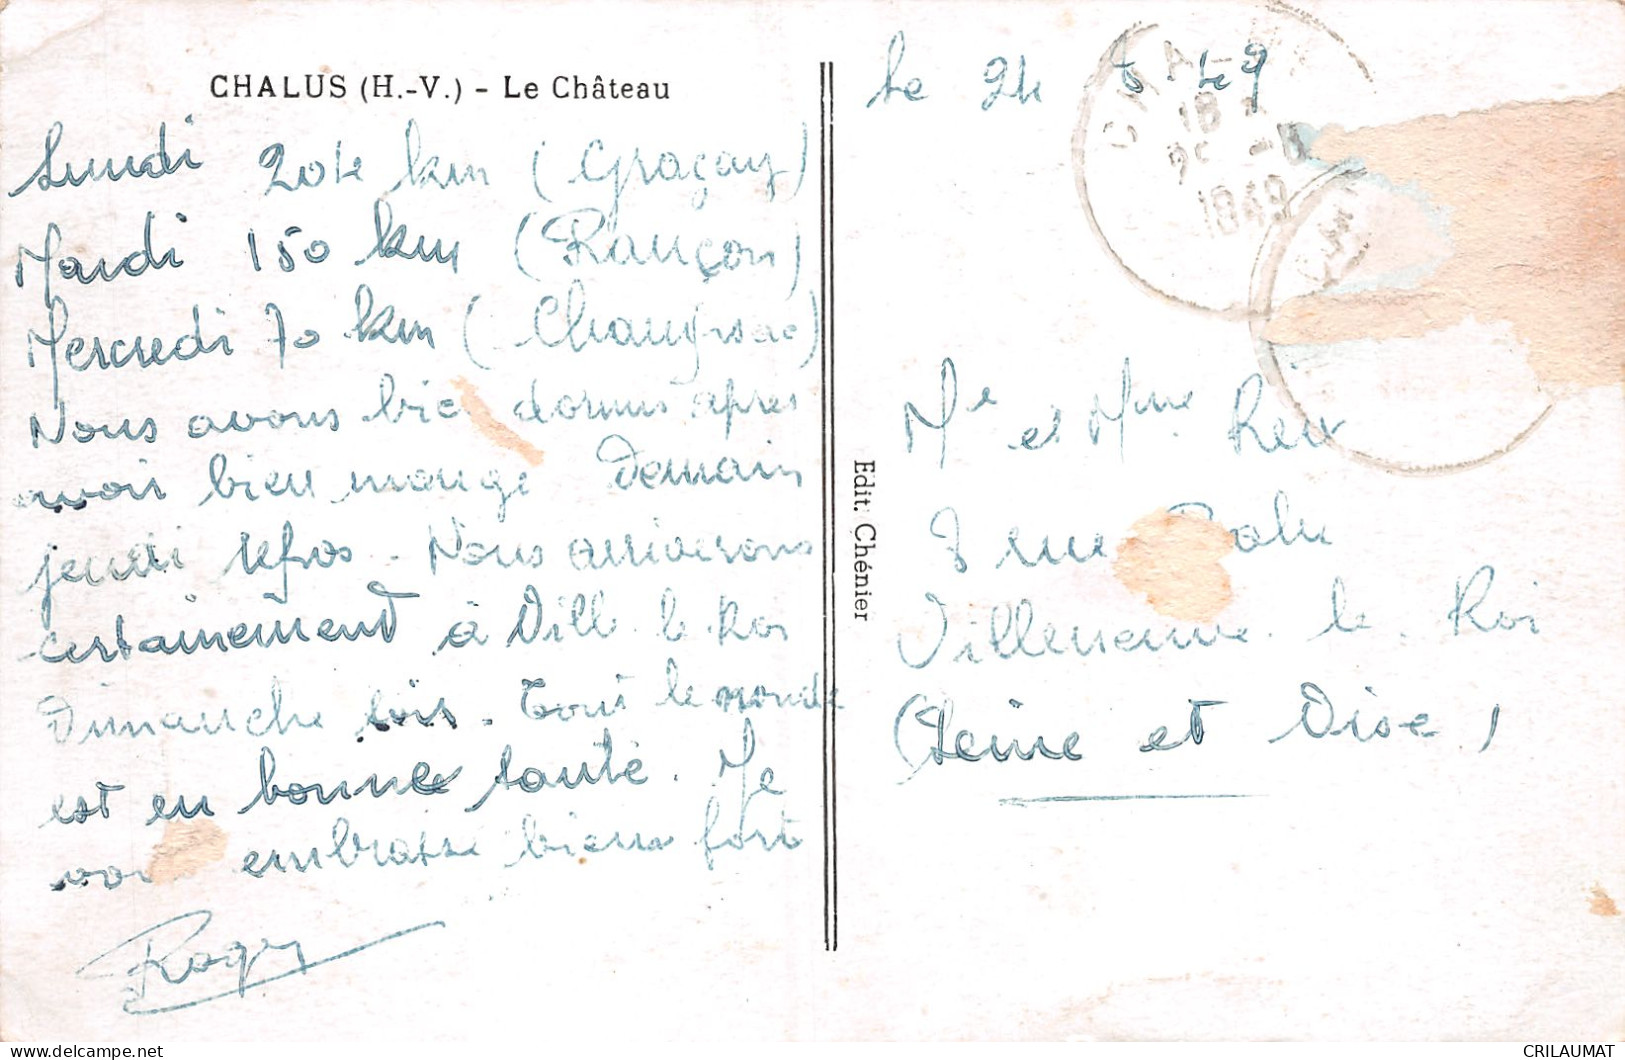 CHALUS (H.-V.) - Le Château
Lundi 204 km (Graçay)
Mardi 150 km (Rançon)
Mercredi 70 km (Champsac)
Nous avons bie dormis apres
avoir bien mangé Demain
jeudi repos - Nous arriverons
certainement à Vill. le Roi
Dimanche soir. Tout le monde
est en bonne santé. Je
vou embrasse bien fort
Roger
Edit. Chénier
le 24 8 49
CHA
18
25 -8
1949
Mr et Mme Rey
3 rue
Villeneuve. le. Roi
(Seine et Oise)
CRILAUMAT